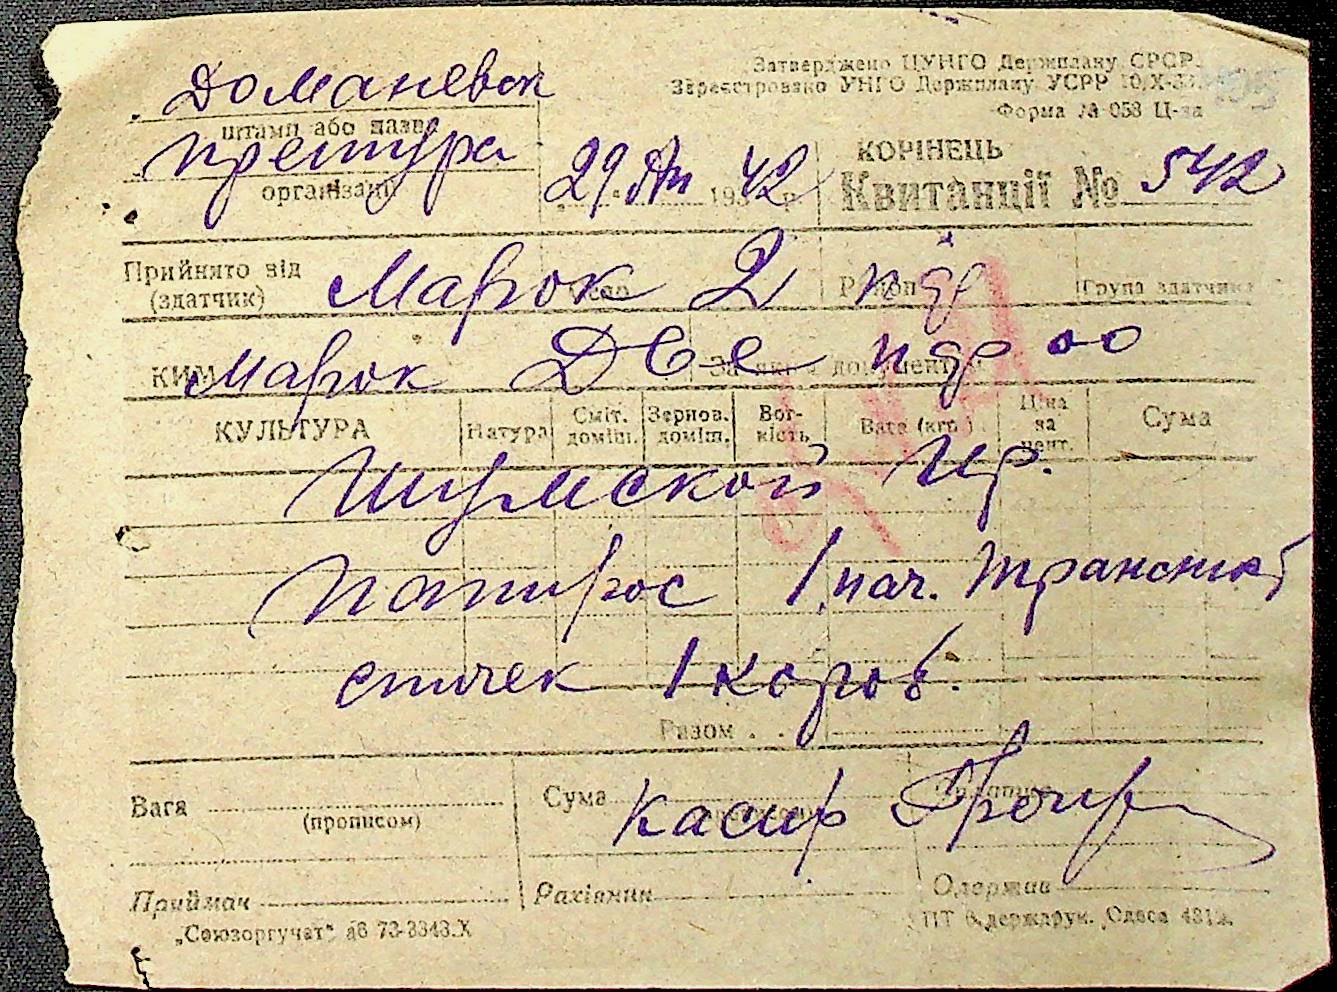 Затверджено ЦУНГО Держплану СРСР.
Зареєстровано УНГО Держплану УСРР 10.X-37.
Форма № 058 Ц-за
Доманевск
штамп або назва
претура
організації
29 193 42 р.
КОРІНЕЦЬ
Квитанції № 542
Прийнято від
(здатчик)
Марок 2
Село
Район
Група здатчика
КИМ
Марок Две
За яким документом
00
КУЛЬТУРА
Натура
Сміт. доміш.
Зернов. доміш.
Вогкість
Вага (кгр.)
Ціна за цент.
Сума
Шумской Ир.
Папирос 1 пач.
спичек 1 короб.
Разом . .
Вага
(прописом)
Сума
Касир
Приймач
Рахівник
Одержав
„Союзоргучет“ 73-3343.X
Одеса